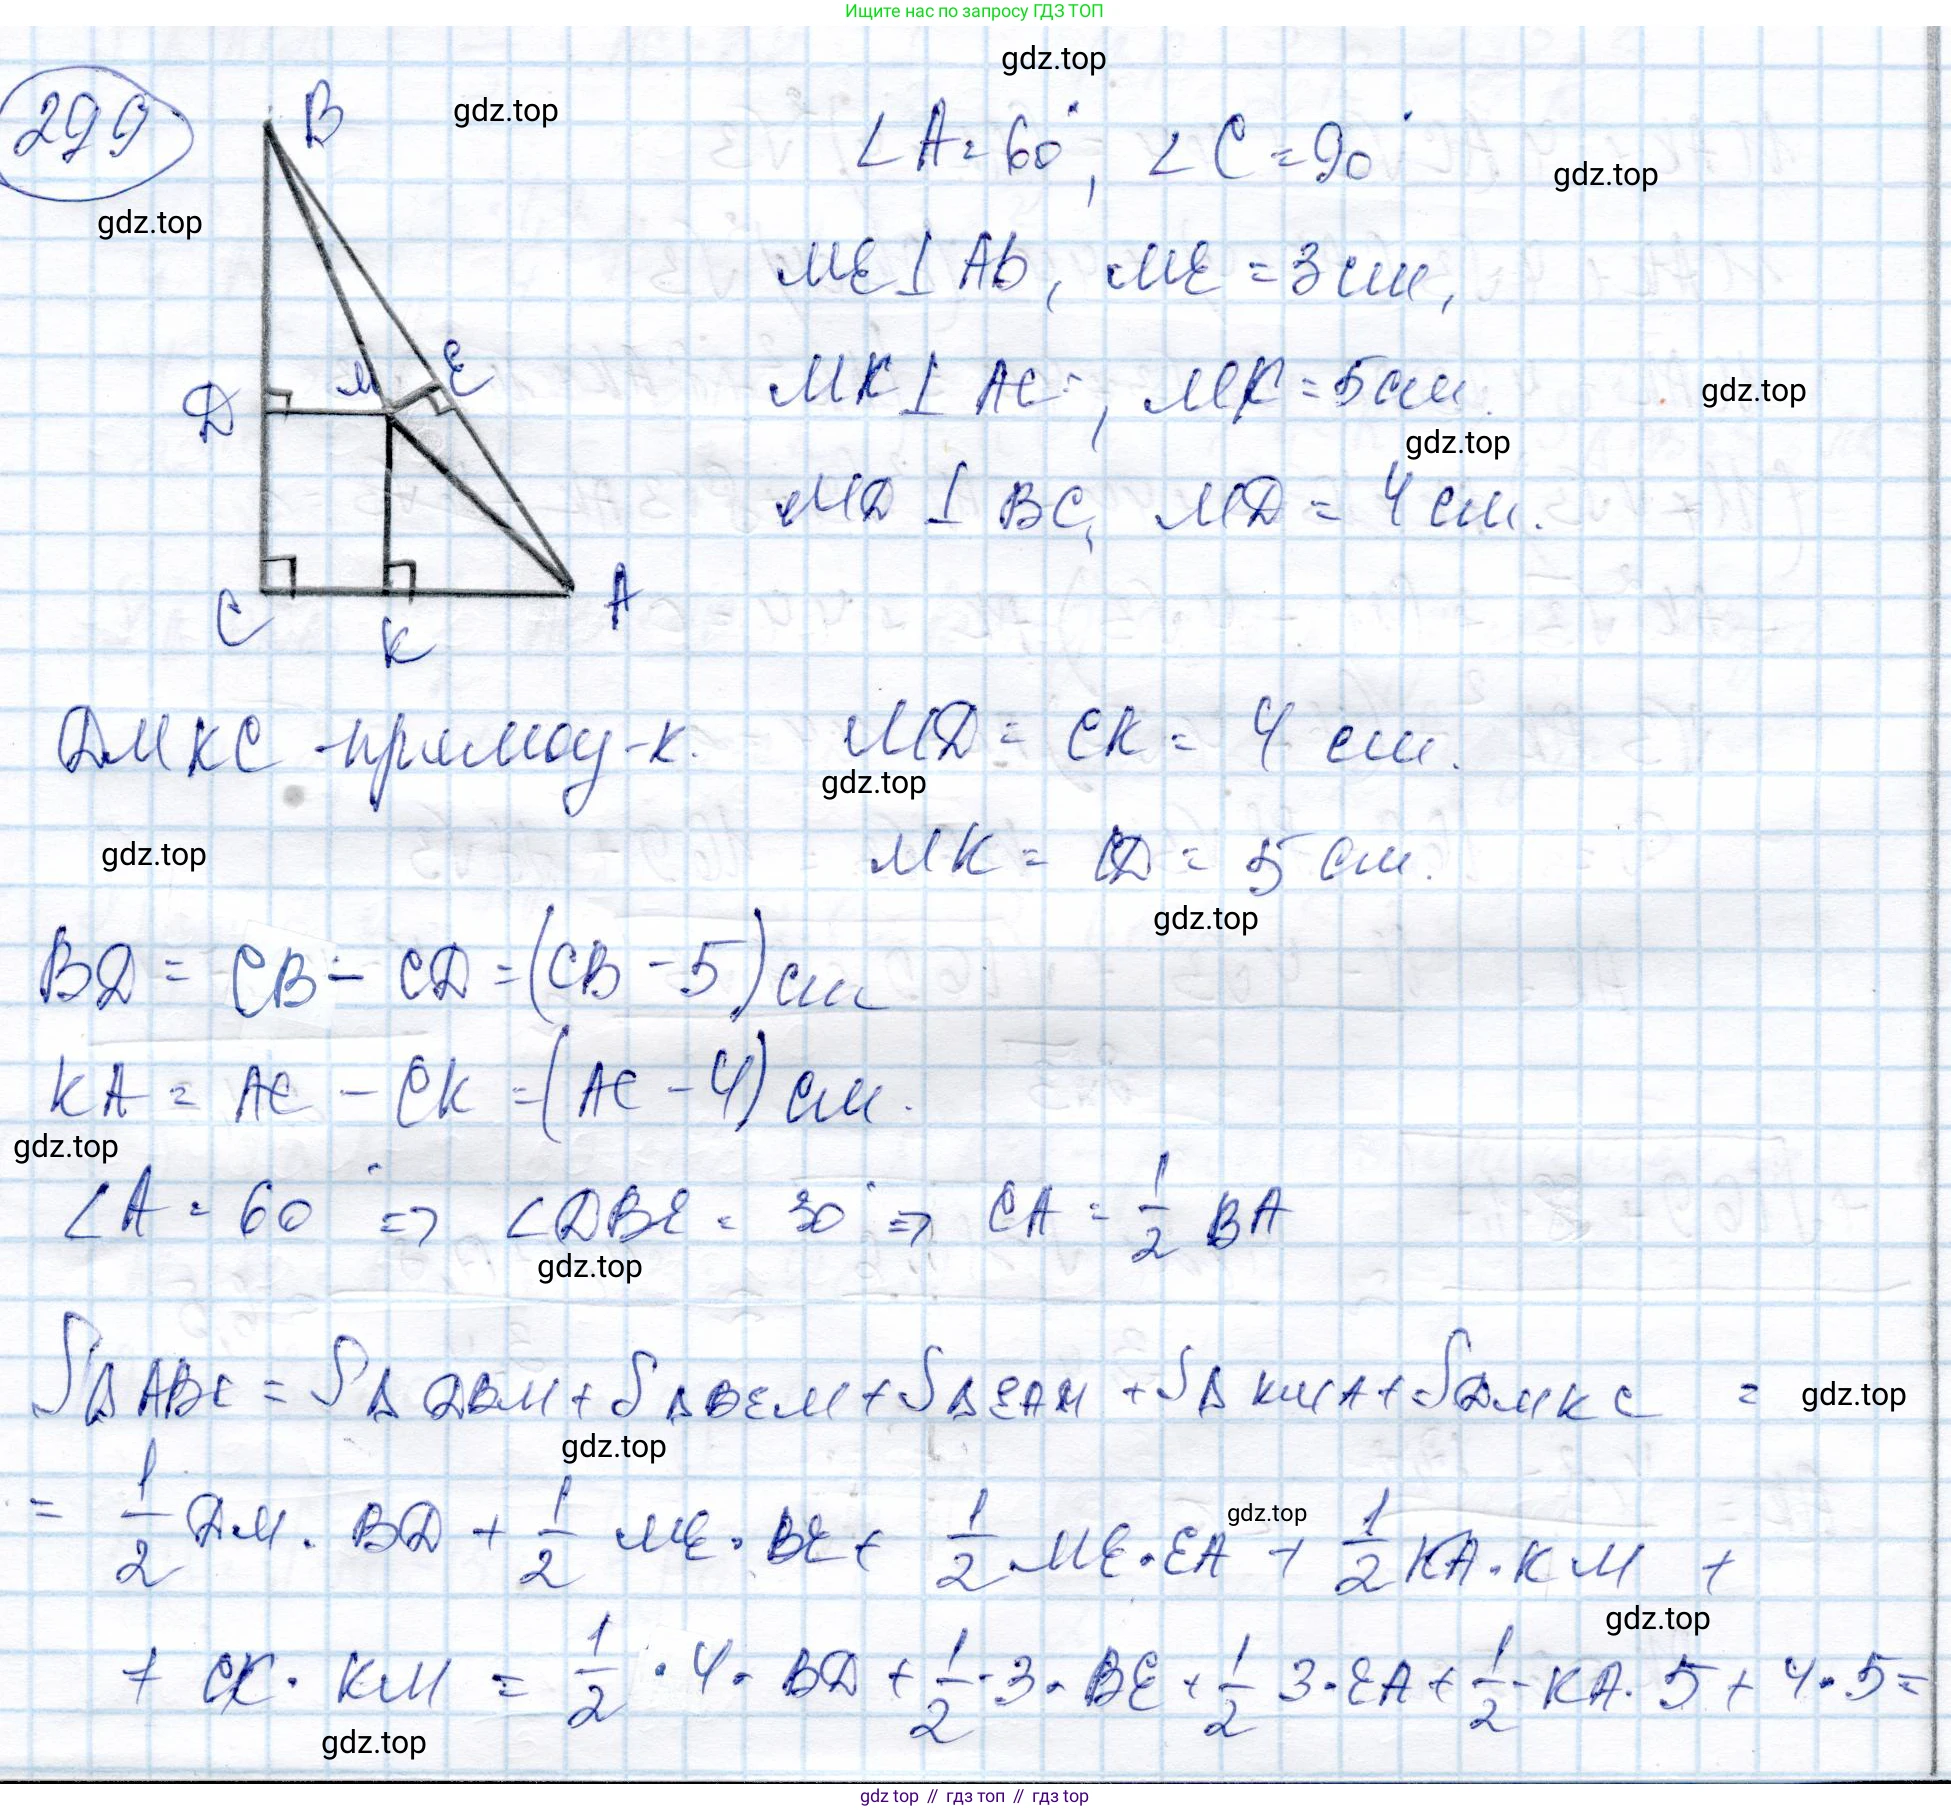 Ищите нас по запросу ГДЗ ТОП
gdz.top
299
B
gdz.top
∠A = 60°, ∠C = 90°
gdz.top
gdz.top
ME ⊥ AB, ME = 3 см,
M
E
D
MK ⊥ AC, MK = 5 см.
gdz.top
gdz.top
MD ⊥ BC, MD = 4 см.
C
K
A
DMKC - прямоуг-к. MD = CK = 4 см.
gdz.top
gdz.top
MK = CD = 5 см.
gdz.top
BD = CB - CD = (CB - 5) см
KA = AC - CK = (AC - 4) см.
gdz.top
∠A = 60° => ∠DBE = 30° => CA = 1/2 BA
gdz.top
S△ABC = S△DBM + S△BEM + S△EAM + S△KMA + SDMKC =
gdz.top
gdz.top
= 1/2 DM · BD + 1/2 ME · BE + 1/2 ME · EA + 1/2 KA · KM +
gdz.top
gdz.top
+ CK · KM = 1/2 · 4 · BD + 1/2 · 3 · BE + 1/2 3 · EA + 1/2 · KA · 5 + 4 · 5 =
gdz.top
gdz top // гдз топ // гдз top